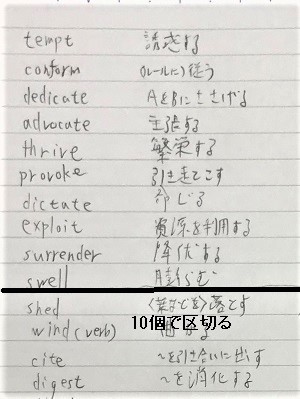 tempt 誘惑する
conform (ルールに)従う
dedicate AをBにささげる
advocate 主張する
thrive 繁栄する
provoke 引き起こす
dictate 命じる
exploit 資源を利用する
surrender 降伏する
swell 膨らむ
shed 〈葉などを〉落とす
wind (verb)
10個で区切る
cite ～を引き合いに出す
digest ～を消化する